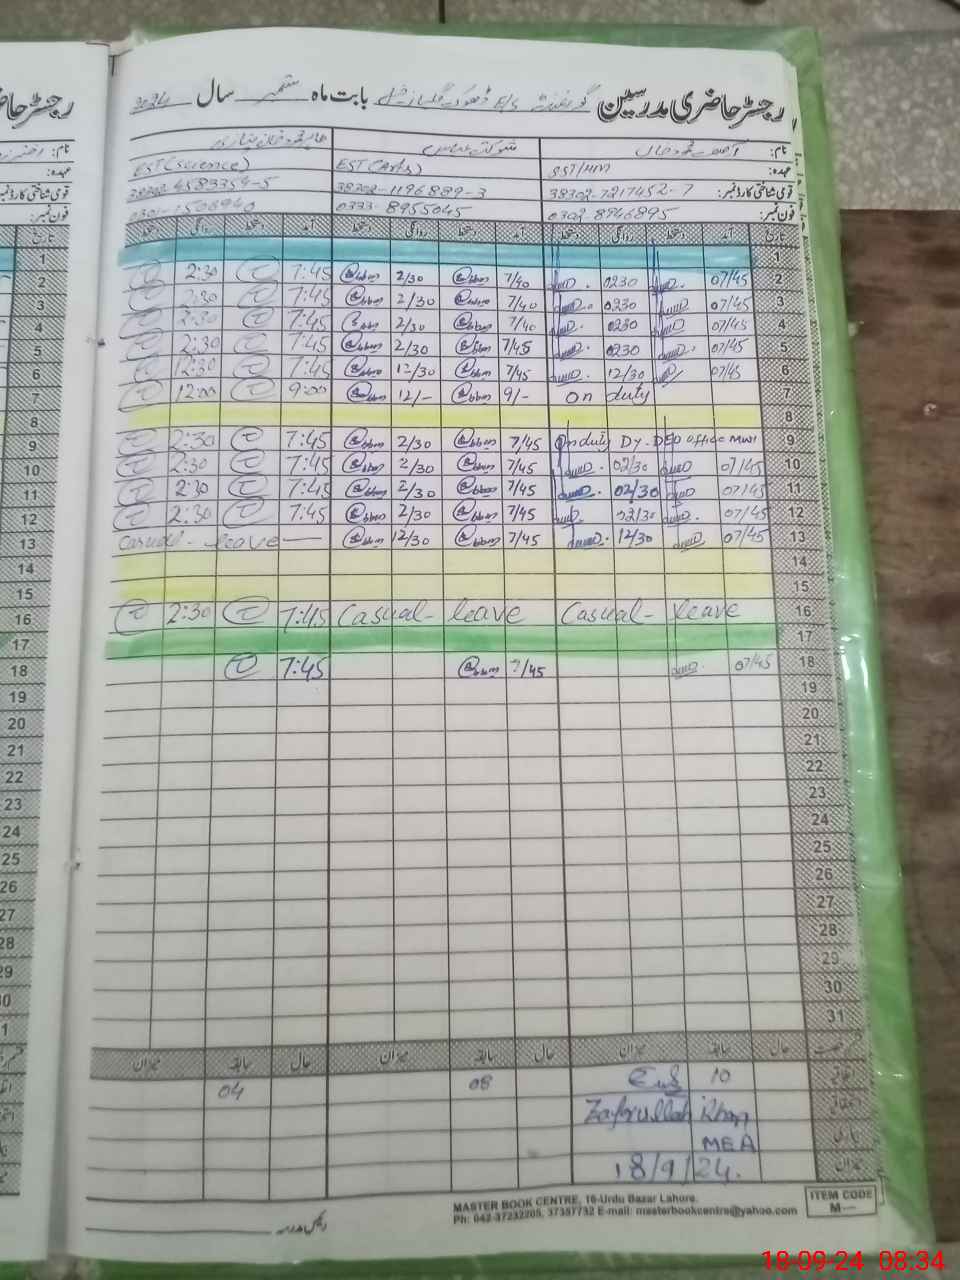 رجسٹر حاضری مدرسین گورنمنٹ E/S ڈھوک بابت ماہ ستمبر سال 2024
نام: آصف محمود خان شوکت عباس
عہدہ: SST/HM EST(Arts) EST(Science)
قومی شناختی کارڈ نمبر: 38302-7217452-7 38302-1196889-3 38302-4583359-5
فون نمبر: 0302-8946895 0333-8955045 0301-1506940
تاریخ آمد دستخط روانگی دستخط آمد دستخط روانگی دستخط آمد دستخط روانگی دستخط
1
2 07/45 0230 7/40 2/30 7:45 2:30
3 07/45 0230 7/40 2/30 7:45 2:30
4 07/45 0230 7/40 2/30 7:45 2:30
5 07/45 0230 7/45 2/30 7:45 2:30
6 07/45 12/30 7/45 12/30 7:45 12:30
7 on duty 9/- 12/- 9:00 12:00
8
9 On duty Dy. DEO office MWI 7/45 2/30 7:45 2:30
10 07/45 02/30 7/45 2/30 7:45 2:30
11 07/45 02/30 7/45 2/30 7:45 2:30
12 07/45 02/30 7/45 2/30 7:45 2:30
13 07/45 12/30 7/45 12/30 Casual - leave
14
15
16 Casual - leave Casual - leave 7:45 2:30
17
18 07/45 7/45 7:45
19
20
21
22
23
24
25
26
27
28
29
30
31
حال سابقہ میزان حال سابقہ میزان حال سابقہ میزان
10 08 04
Zafarullah Khan
MEA
18/9/24.
میزان
رئیس مدرسہ
MASTER BOOK CENTRE, 16-Urdu Bazar Lahore.
Ph: 042-37232205, 37357732 E-mail: masterbookcentre@yahoo.com
ITEM CODE
M—
18-09-24 08:34